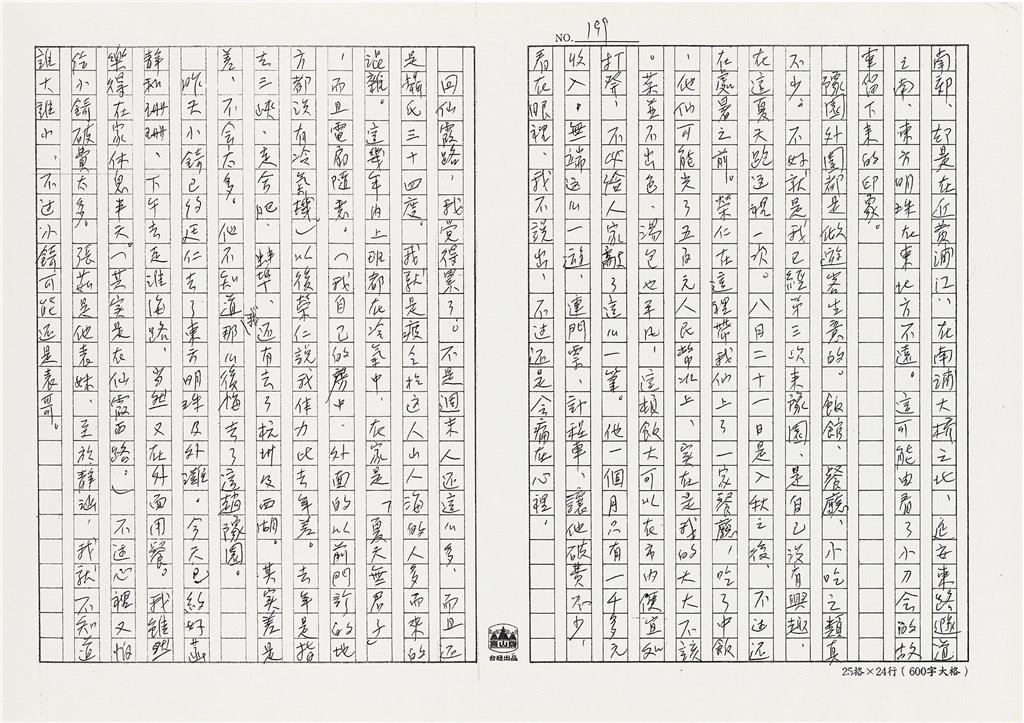 NO. 199
南郊，却是在近黄浦江，在南浦大桥之北、延安東路隧道
之南，東方明珠在東北方不遠。這可能由看了小刀会的故
事留下来的印象。
豫園外圍都是做遊客生意的。飯館、餐廳、小吃之類真
不少。不好就是我已經第三次来豫園，是自己没有興趣
在這夏天跑這一次。八月二十一日是入秋之後，不过还
在處暑之前。榮仁在這裡帶我们上了一家餐廳，吃了中飯
，他们可能光了五百元人民幣以上，实在是我的大大不該
。菜並不出色，湯包也平凡，這頓飯大可以在市内便宜处
打發，不必给人家敲了這么一筆。他一個月只有一千多元
收入。無端这么一遊，連門票、計程車，讓他破費不少，
看在眼裡，我不說出，不过还是会痛在心裡。
回仙霞路，我觉得累了。不是週末人还這么多，而且还
是攝氏三十四度。我就是疲乏於这人山人海的人多而来的
混雜。這幾年内上那都在冷氣中，在家是「夏天無君子」
，而且電扇隨意。（我自己的房中，外面的以前門診的地
方都没有冷氣機）以後榮仁說我体力比去年差。去年是指
去三峡、走合肥、蚌埠、还有去了杭州及西湖。其実差是
差，不会太多。他不知道那（我）么後悔去了這趟豫園。
昨天小錡已约廷仁去了東方明珠及外灘。今天已约好菡
静和珊珊，下午去走淮海路，当然又在外面用餐。我雖然
樂得在家休息半天。（其实是在仙霞西路。）不过心裡又怕
给小錡破費太多。張茹是他表妹，至於静涵，我就不知道
誰大誰小，不过小錡可能还是表哥。
高山牌
台紐出品
25格×24行（600字大格）